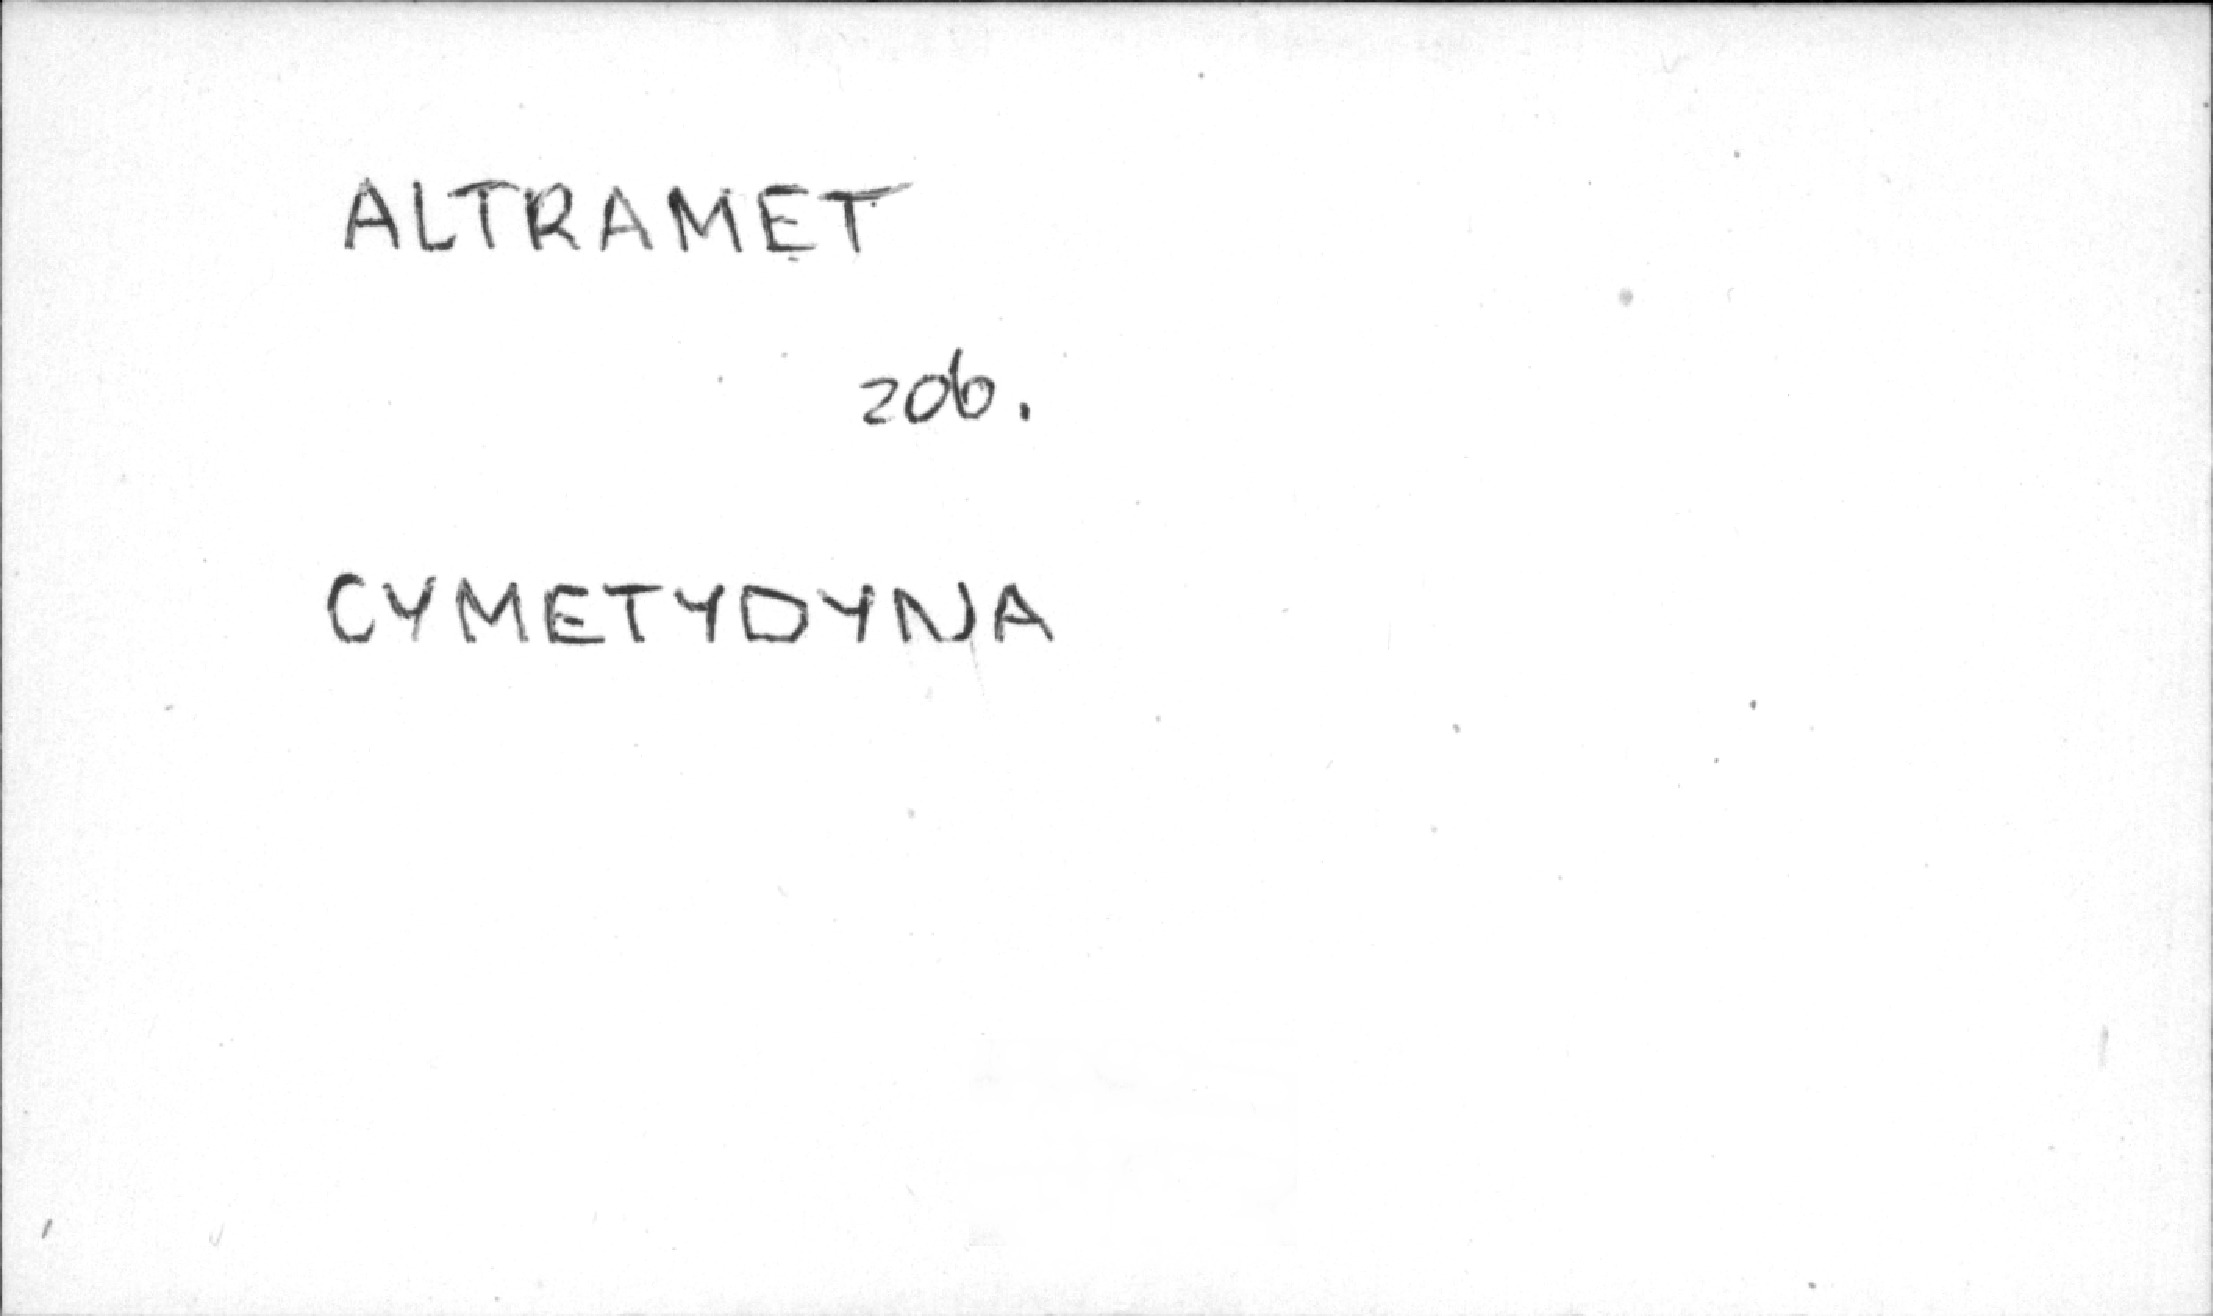 ALTRAMET
zob.
CYMETYDYNA